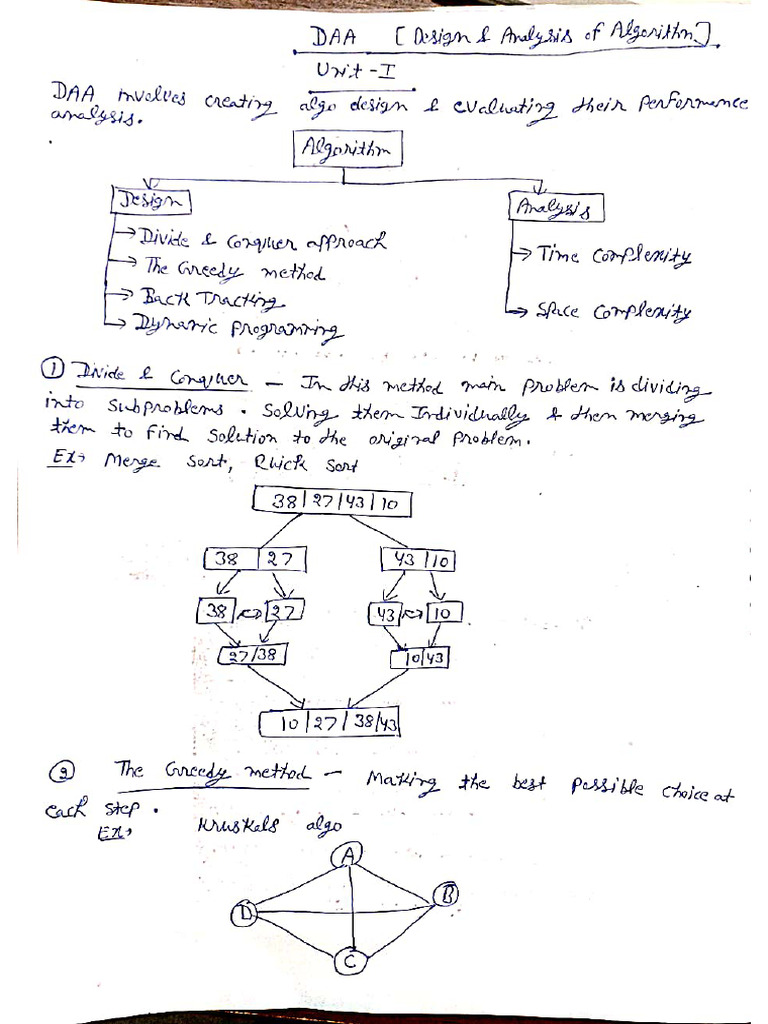 DAA [Design & Analysis of Algorithm].
Unit - I
DAA involves creating algo design & evaluating their performance
analysis.
Algorithm
Design
Analysis
Divide & Conquer approach
The Greedy method
Back Tracking
Dynamic Programming
Time Complexity
Space Complexity
① Divide & Conquer — In this method main problem is dividing
into subproblems. Solving them Individually & then merging
them to find solution to the original problem.
Ex→ Merge sort, Quick sort
38 | 27 | 43 | 10
38 | 27 43 | 10
38 ↔ 27 43 ↔ 10
27/38 10/43
10 | 27 | 38 | 43
② The Greedy method — Making the best possible choice at
each step.
Ex→ Kruskels algo
A
B
D
C